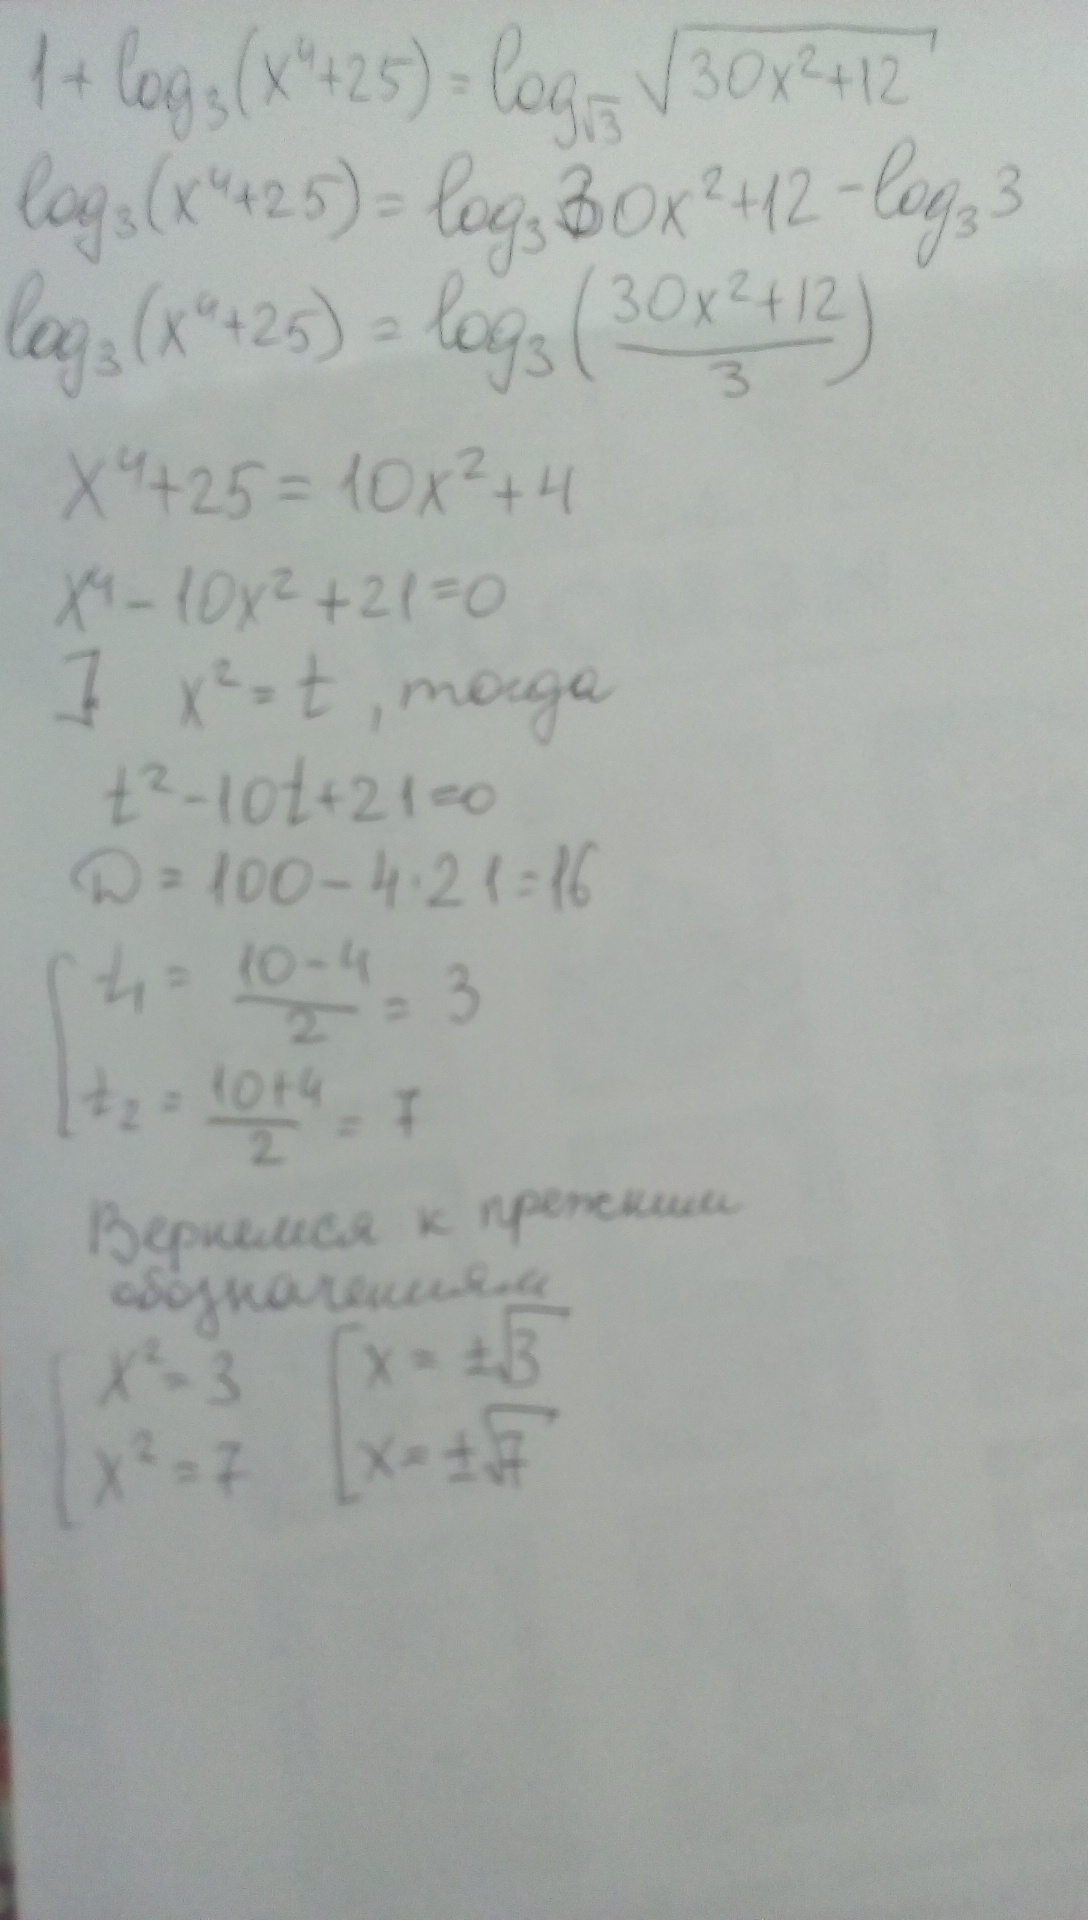 1 + log₃(x⁴+25) = log_√3 √(30x²+12)
log₃(x⁴+25) = log₃ 30x²+12 - log₃ 3
log₃(x⁴+25) = log₃((30x²+12)/3)
x⁴+25 = 10x²+4
x⁴ - 10x² + 21 = 0
] x² = t, тогда
t² - 10t + 21 = 0
D = 100 - 4·21 = 16
[ t₁ = (10-4)/2 = 3
t₂ = (10+4)/2 = 7
Вернемся к прежним
обозначениям
[ x² = 3 [ x = ±√3
x² = 7 x = ±√7